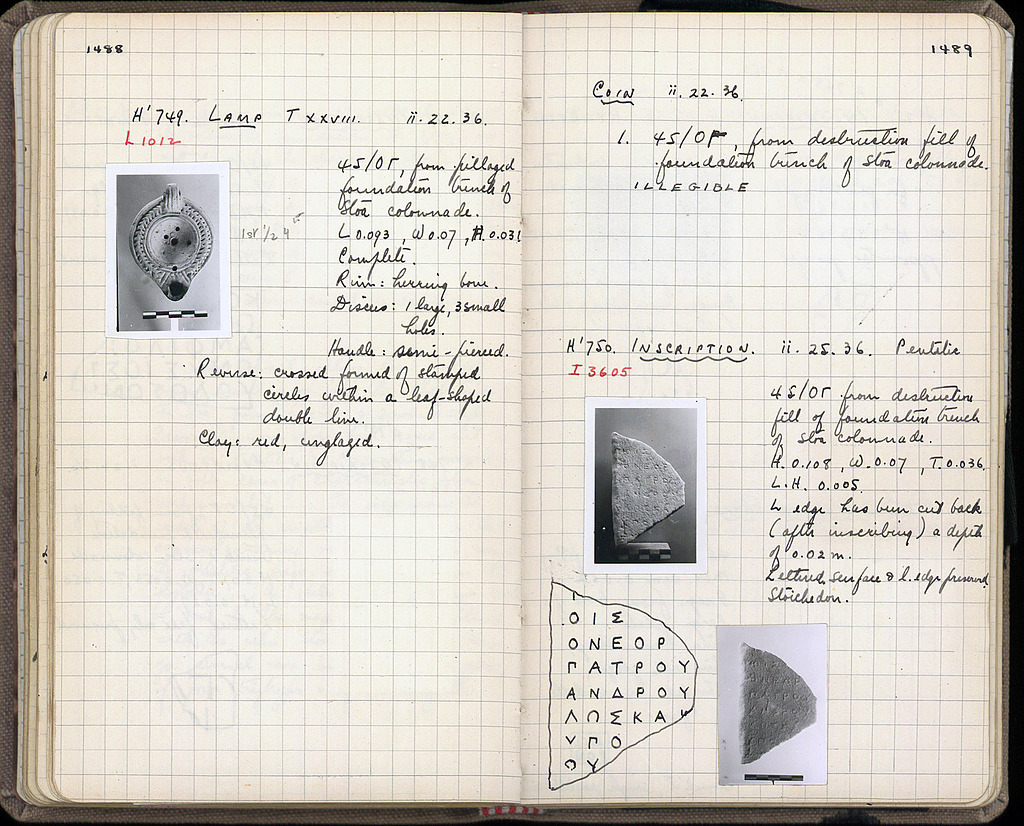 1488
H'749. LAMP T XXVIII. ii. 22. 36.
L 1012
45/ΟΓ, from pillaged
foundation trench of
Stoa colonnade.
L 0.093, W 0.07, H. 0.031
Complete.
Rim: herring bone.
Discus: 1 large, 3 small
holes.
Handle: semi-pierced.
Reverse: crossed formed of stamped
circles within a leaf-shaped
double line.
Clay: red, unglazed.
1489
COIN ii. 22. 36.
1. 45/ΟΓ, from destruction fill of
foundation trench of Stoa colonnade.
ILLEGIBLE
H'750. INSCRIPTION. ii. 25. 36. Pentelic
I 3605
45/ΟΓ from destruction
fill of foundation trench
of Stoa colonnade.
H. 0.108, W. 0.07, T. 0.036.
L.H. 0.005.
L edge has been cut back
(after inscribing) a depth
of 0.02 m.
Lettered surface & l. edge preserved.
Stoichedon.
Ο Ι Σ
Ο Ν Ε Ο Ρ
Γ Α Τ Ρ Ο Υ
Α Ν Δ Ρ Ο Υ
Λ Ω Σ Κ Α
Υ Γ Ο
Ο Υ